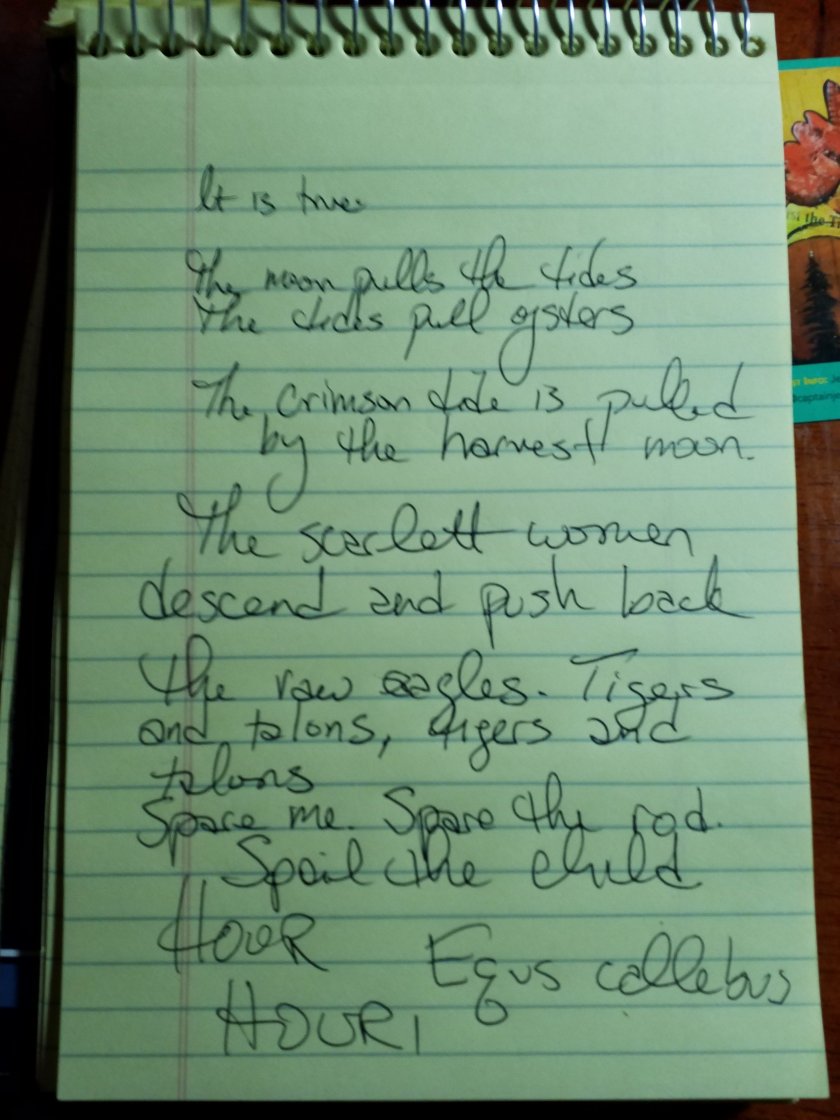 It is true
The moon pulls the tides
The tides pull oysters
The Crimson tide is pulled
by the harvest moon.
The scarlett women
descend and push back
the raw eagles. Tigers
and talons, tigers and
talons
Spare me. Spare the rod.
Spoil the child
HOUR
Equs callebus
HOURI